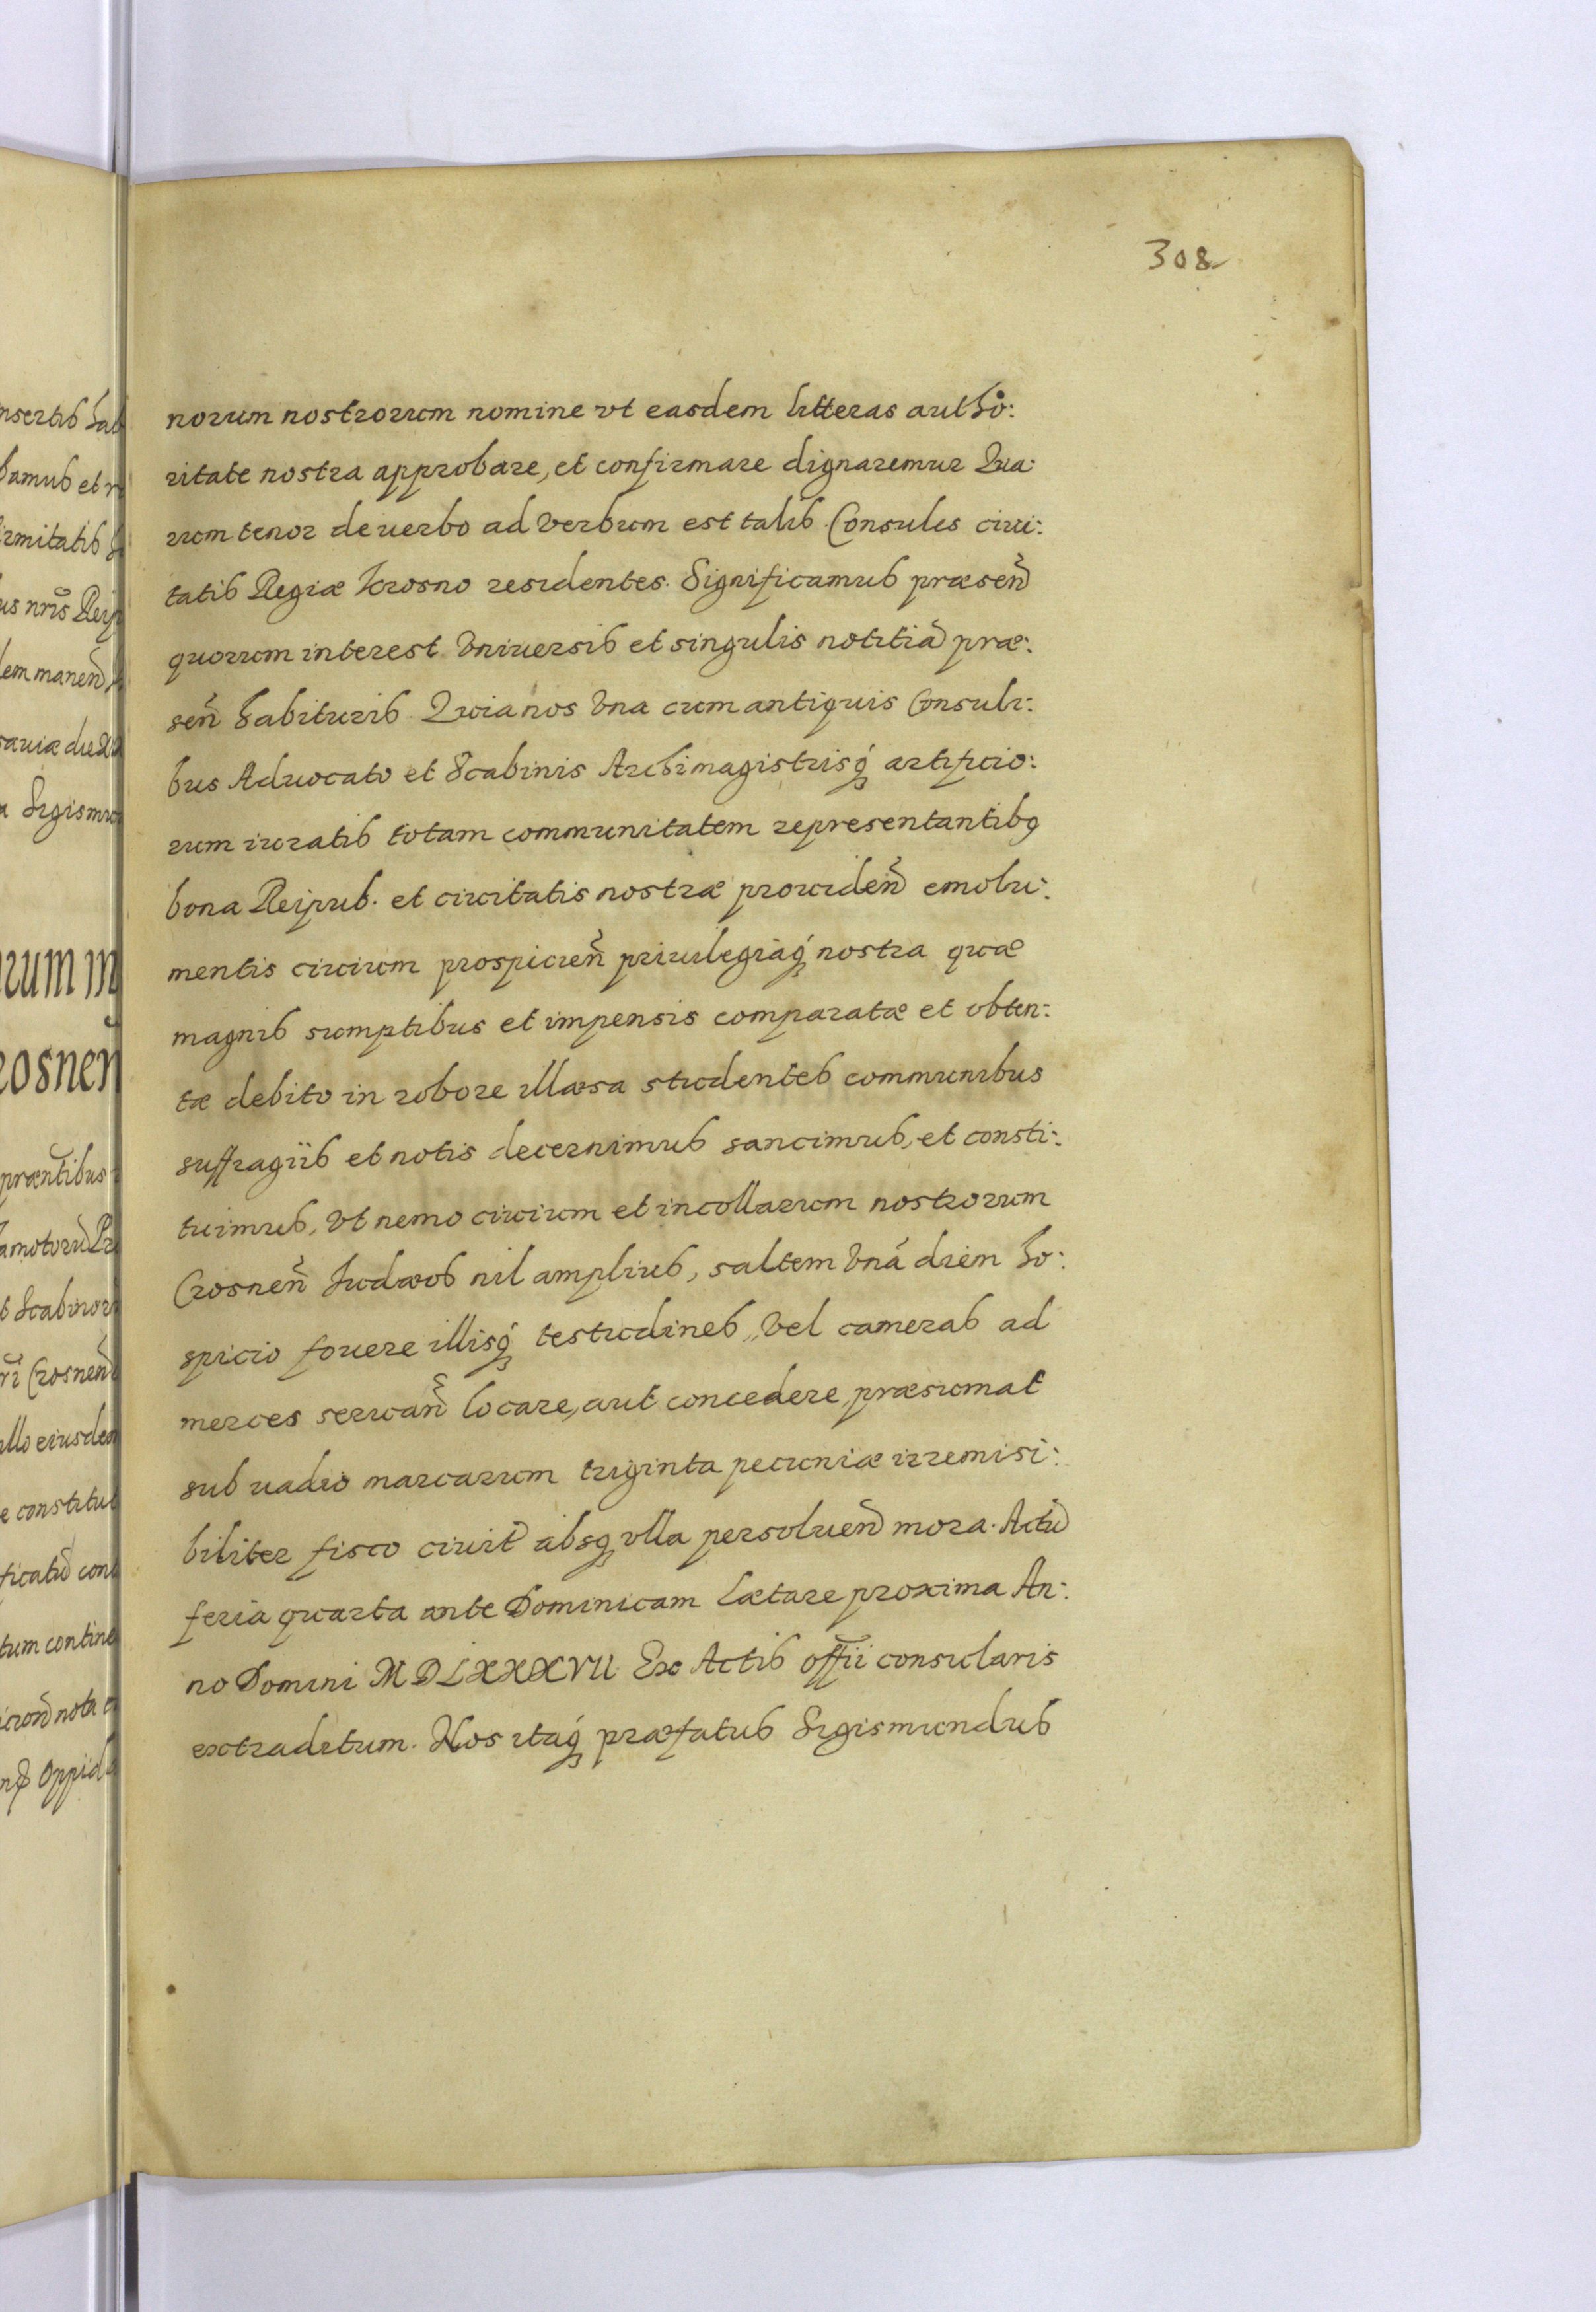 308
norum nostrorum nomine vt easdem litteras autho:
ritate nostra approbare, et confirmare dignaremur Qua:
rum tenor de uerbo ad verbum est talis. Consules ciui:
tatis Regiæ Krosno residentes. Significamus præsen̄
quorum interest vniuersis et singulis notitiā præ:
sen̄ habituris. Quia nos vna cum antiquis Consuli:
bus Aduocato et Scabinis Archimagistrisq́ꝫ artificio:
rum iuratis totam communitatem representantibꝫ
bona Reipub. et ciuitatis nostræ prouiden̄ emolu:
mentis ciuium prospicien̄ priuilegiaq́ꝫ nostra quæ
magnis sumptibus et impensis comparatæ et obten:
tæ debito in robore illæsa studentes communibus
suffragiis et notis decernimus sancimus, et consti:
tuimus, vt nemo ciuium et incollarum nostrorum
Crosnen̄ Iudæos nil amplius, saltem vnā diem ho:
spicio fouere illisq́ꝫ testudines, vel cameras ad
merces seruan̄ locare, aut concedere præsumat
sub uadio marcarum triginta pecuniæ irremisi:
biliter fisco ciuit̄ absqꝫ vlla persoluen̄ mora. Actū
feria quarta ante Dominicam Lætare proxima An:
no Domini MDLXXXVII. Ex Actis offīi consularis
extraditum. Nos itaq́ꝫ præfatus Sigismundus